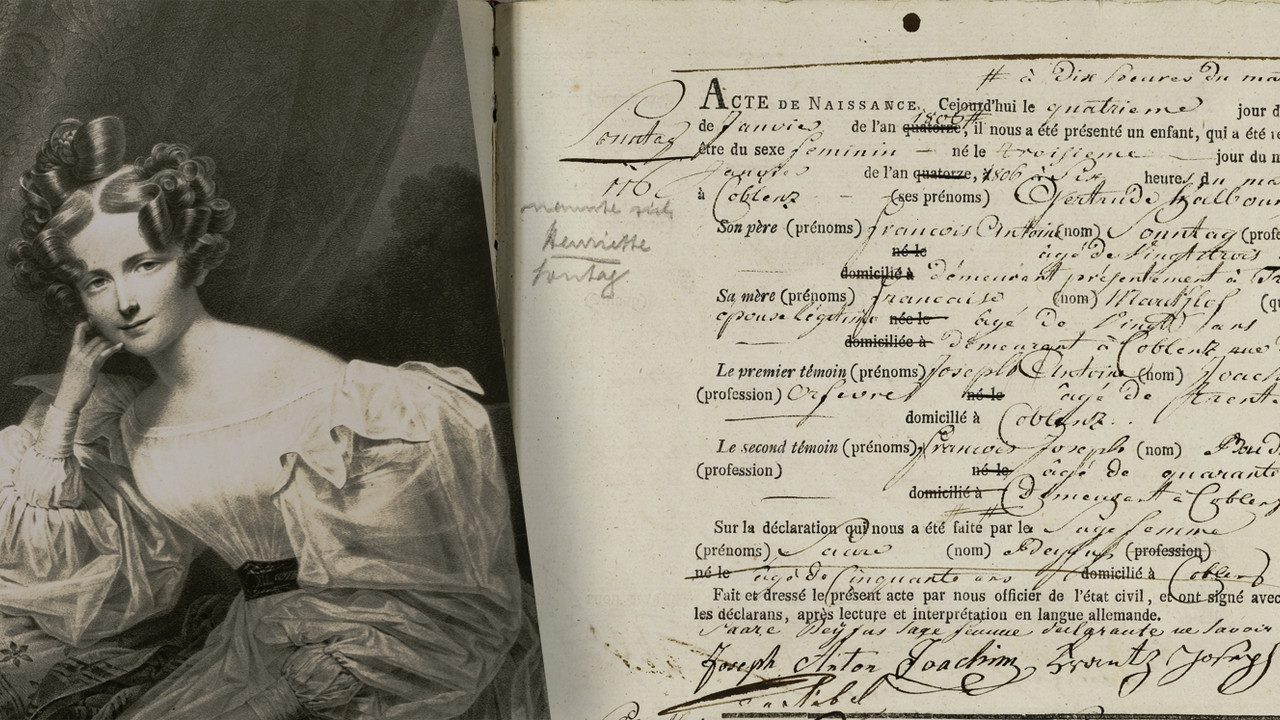 # à Dix heures du ma
ACTE DE NAISSANCE. Cejourd'hui le quatrieme jour d
Sonntag
de Janvier de l'an quatorze, 1806 #, il nous a été présenté un enfant, qui a été
être du sexe feminin — né le troisieme jour du
Janvier de l'an quatorze, 1806 à Six heures du ma
116
à Coblenz — (ses prénoms) Gertrude Walbour
nannte sich
Henriette
Sontag
Son père (prénoms) francois Antoine (nom) Sonntag (profe
né le âgé de Vingt trois
domicilié à démeurant présentement à
Sa mère (prénoms) francaise (nom) (qu
epouse légitime née le âgé de Vingt ans
domiciliée à démeurant à Coblenz rue
Le premier témoin (prénoms) Joseph Antoine (nom) Joach
(profession) Orfevre né le âgé de trente
domicilié à Coblenz.
Le second témoin (prénoms) francois Joseph (nom)
(profession) né le âgé de quarante
domicilié à Demeurant à Coblenz
Sur la déclaration qui nous a été faite par la Sage femme
(prénoms) (nom) (profession)
né le agé de Cinquante ans domicilié à Coblenz
Fait et dressé le présent acte par nous officier de l'état civil, et ont signé avec
les déclarans, après lecture et interprétation en langue allemande.
Sage femme declarante ne Savoir
Joseph Anton Joachim Frantz Joseph